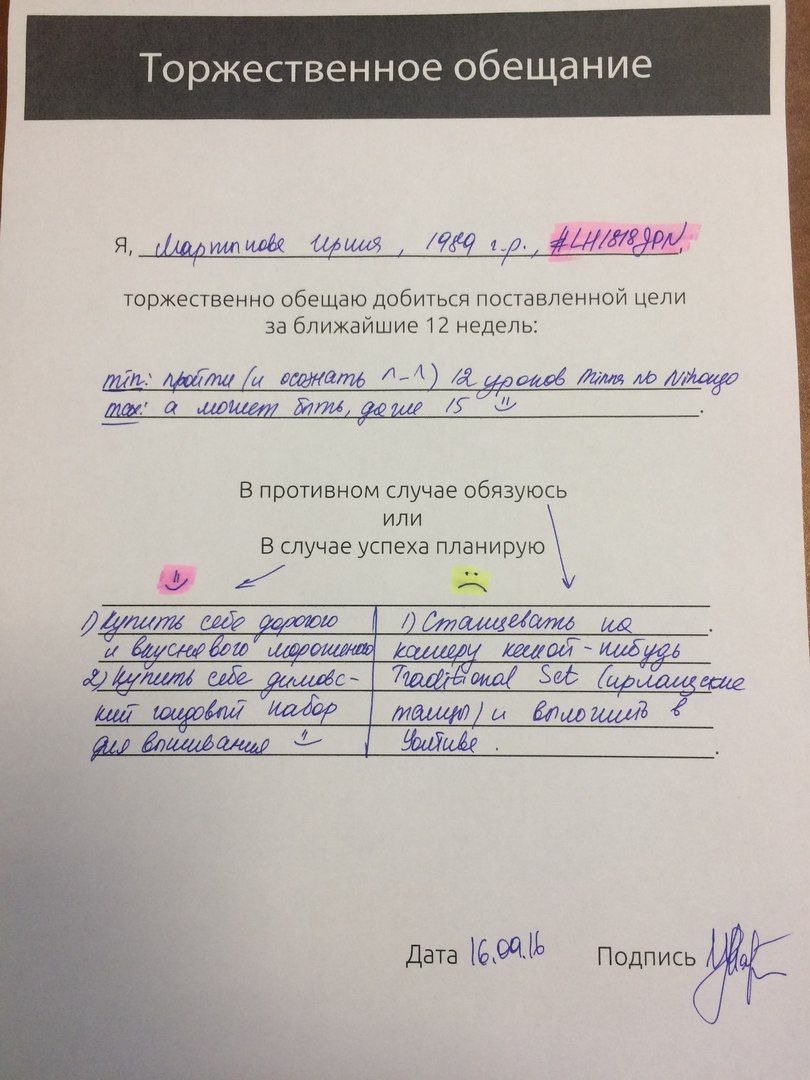 Торжественное обещание
Я, Мартынова Ирина, 1989 г.р., #LH1818JPN,
торжественно обещаю добиться поставленной цели
за ближайшие 12 недель:
min: пройти (и осознать ^-^) 12 уроков Minna No Nihongo
max: а может быть, даже 15 .
В противном случае обязуюсь
или
В случае успеха планирую
1) Купить себе дорогого
и вкусневого мороженого
2) Купить себе димовс-
кий голдовый набор
для вышивания
1) Станцевать на .
камеру какой-нибудь
Traditional Set (ирландские
танцы) и выложить в
Youtube . .
Дата 16.09.16 Подпись